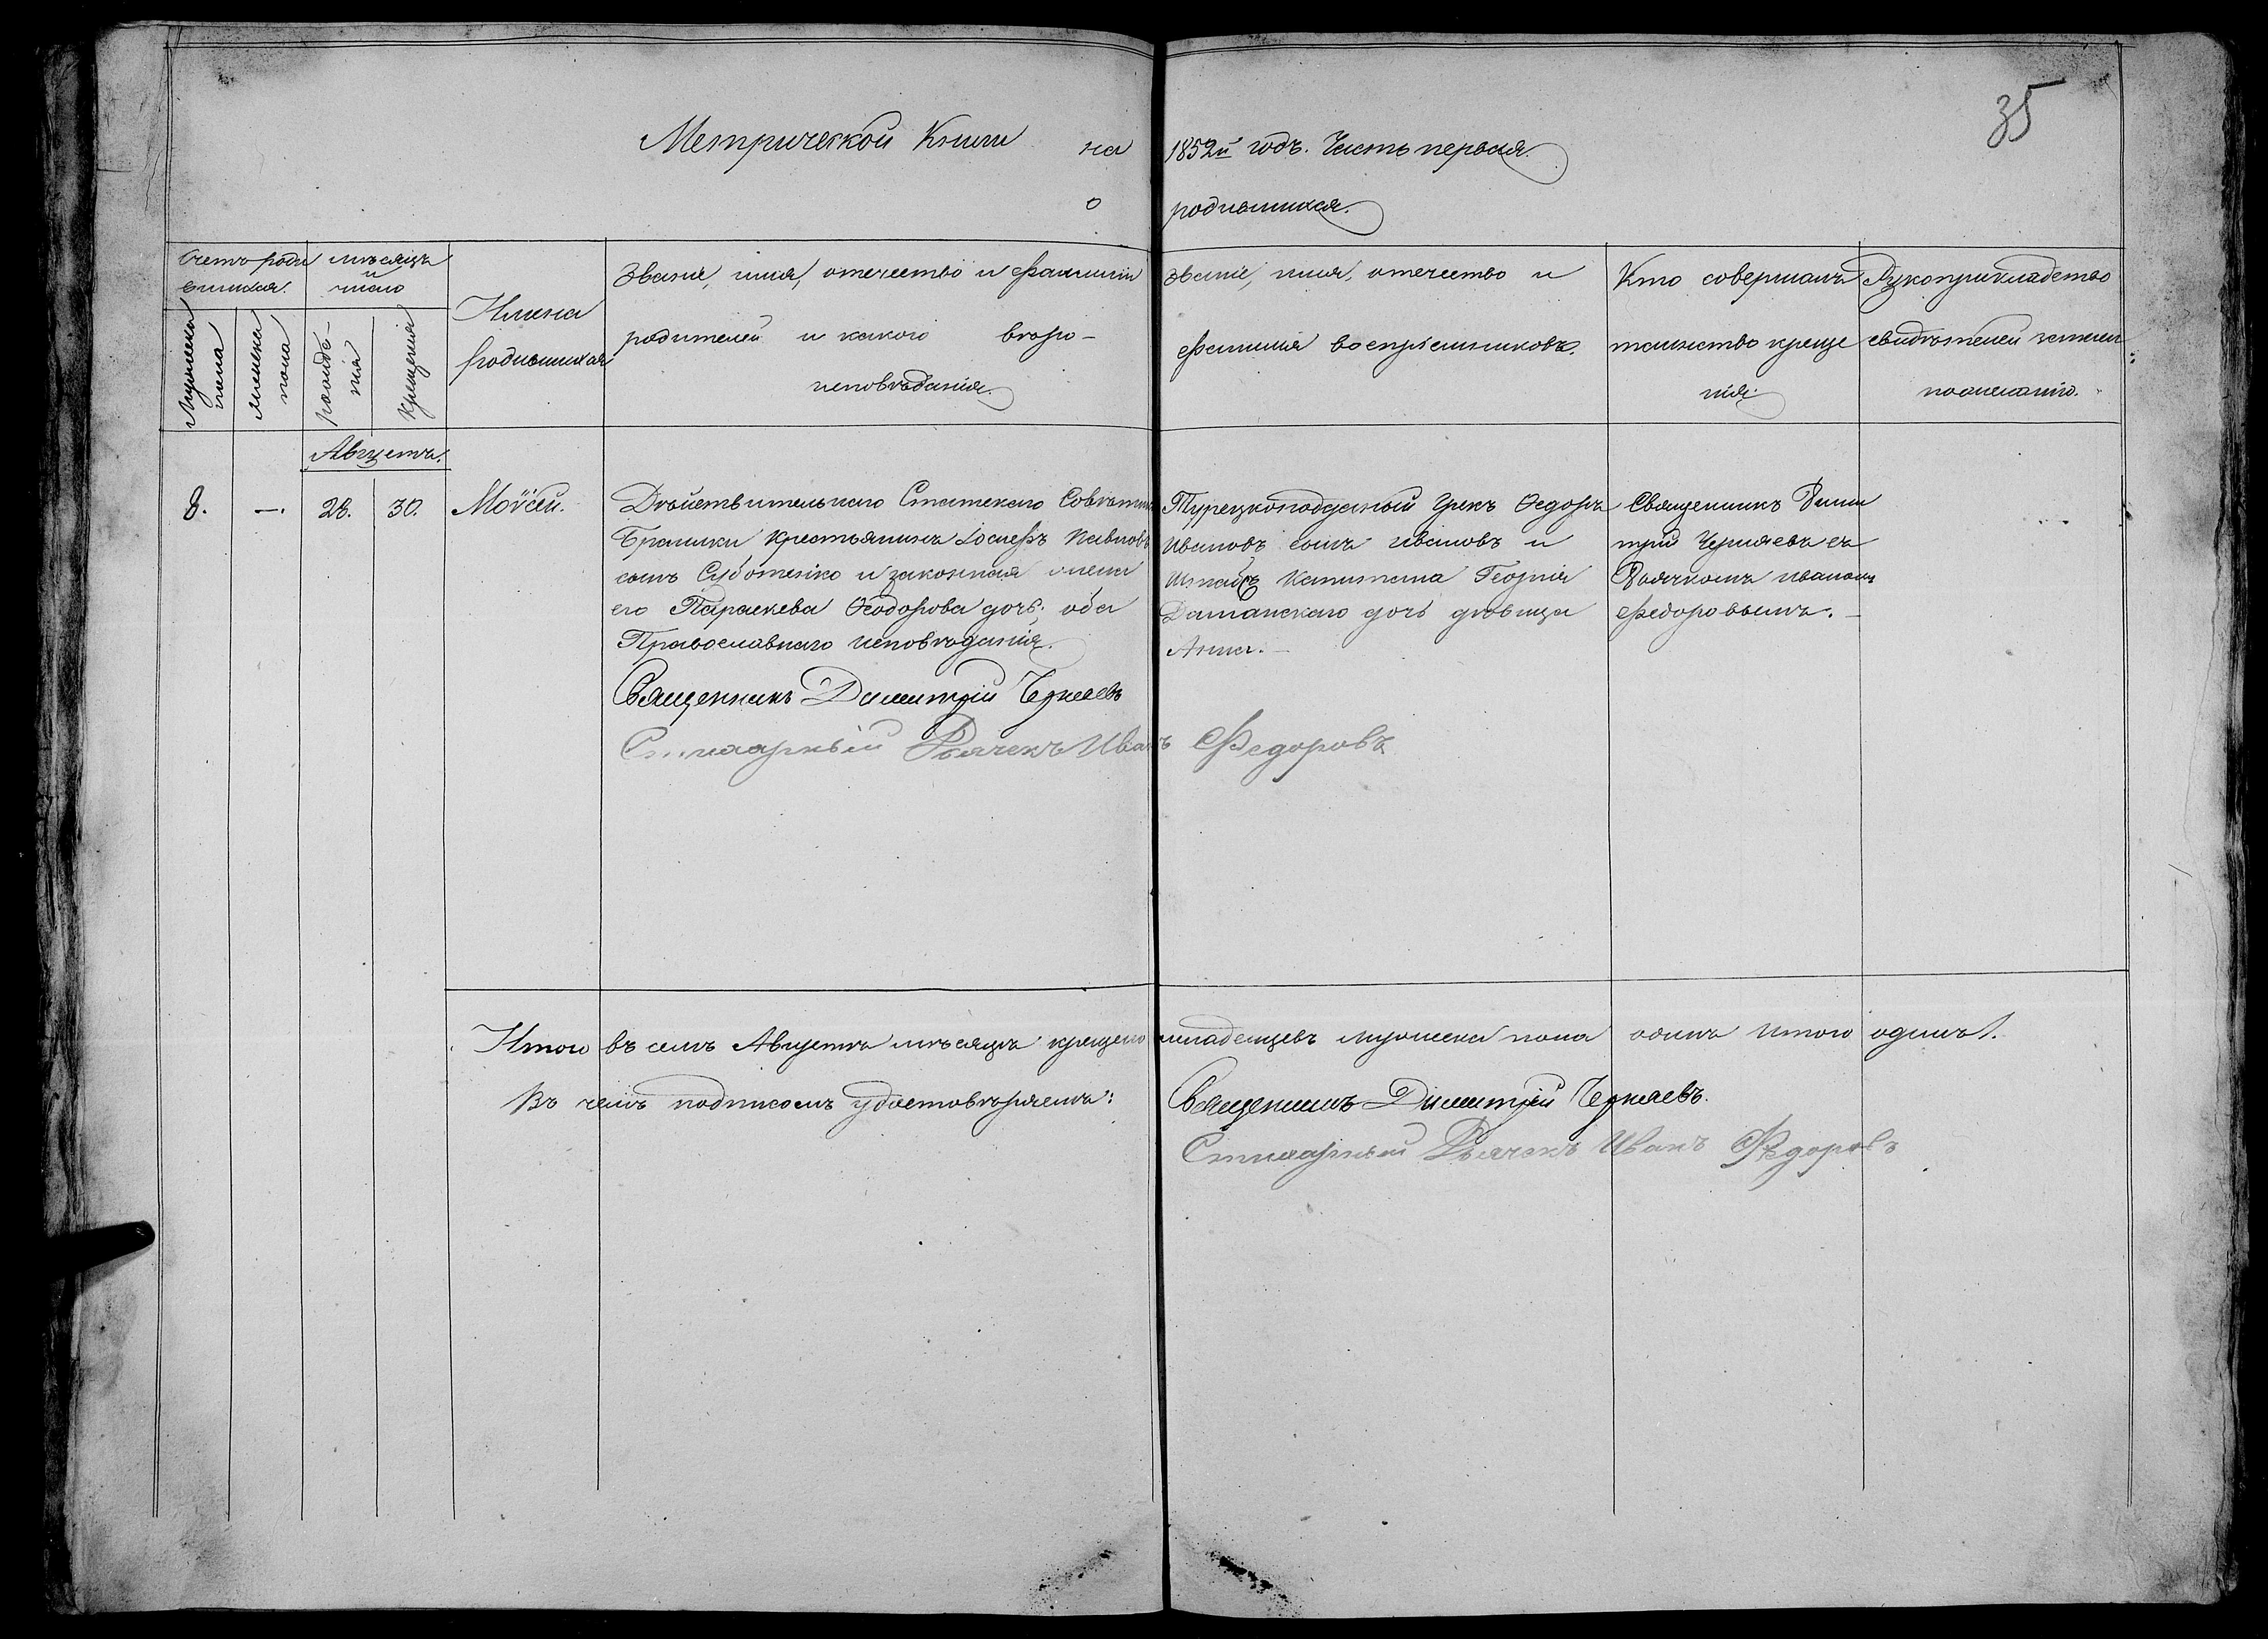 35
Метрической Книги на 1852й годъ. Часть первая
о родившихся.
Счетъ роди
вшихся.
мѣсяцъ
и
число
Мужеска
пола
Женска
пола
рождѣ-
нія
Крещенія
Имена
родившихся
Званіе, имя, отечество и фамилія
родителей и какого вѣро-
исповѣданія.
Званіе, имя, отечество и
фамилія воспріемниковъ.
Кто совершалъ
таинство креще
нія
Рукоприкладство
свидѣтелей записи
по желанію.
Августъ.
8. — 28. 30. Моѵсей.
Дѣйствительнаго Статскаго Совѣтника
крестьянинъ Іосифъ Павловъ
сынъ Суботенко и законная жена
его Параскева Ѳеодорова дочь; оба
Православнаго исповѣданія.
Священникъ Димитрій Черняевъ
Стихарный Дьячекъ Иванъ Федоровъ
Турецкоподданый Грекъ Ѳедоръ
Ивановъ сынъ Ивановъ и
Штабсъ Капитана Георгія
дочь дѣвица
Анна.
Священникъ Дими
трій Черняевъ съ
Дьячкомъ Иваномъ
Федоровымъ.
Итого въ семъ Августѣ мѣсяцѣ крещено младенцевъ мужеска пола одинъ итого одинъ 1.
Въ чемъ подписомъ удостовѣряемъ:
Священникъ Димитрій Черняевъ.
Стихарный Дьячекъ Иванъ Федоровъ